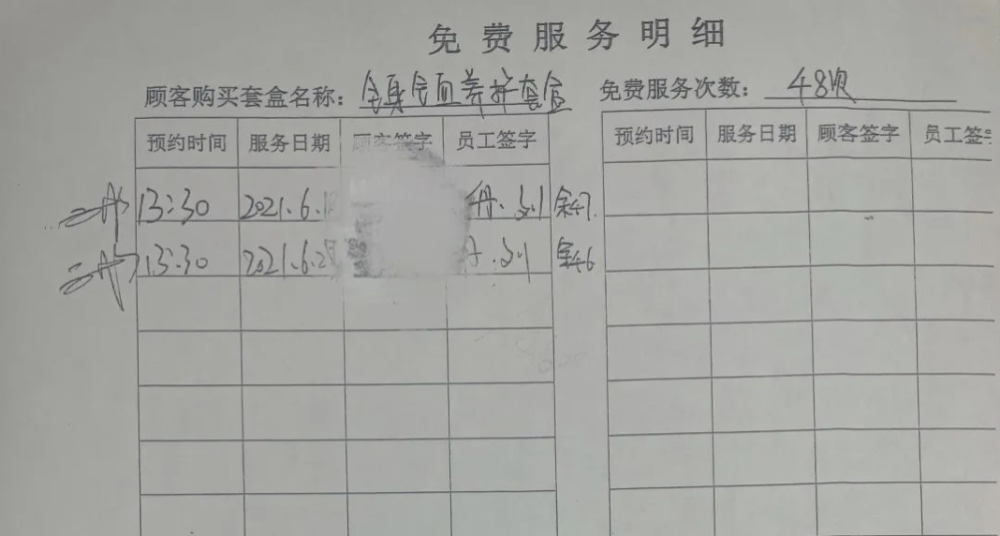 免费服务明细
顾客购买套盒名称：全身全面养护套盒 免费服务次数：48次
预约时间 服务日期 顾客签字 员工签字 预约时间 服务日期 顾客签字 员工签
13:30 2021.6.1 丹.刘 余47
13:30 2021.6.2 丹.刘 余46